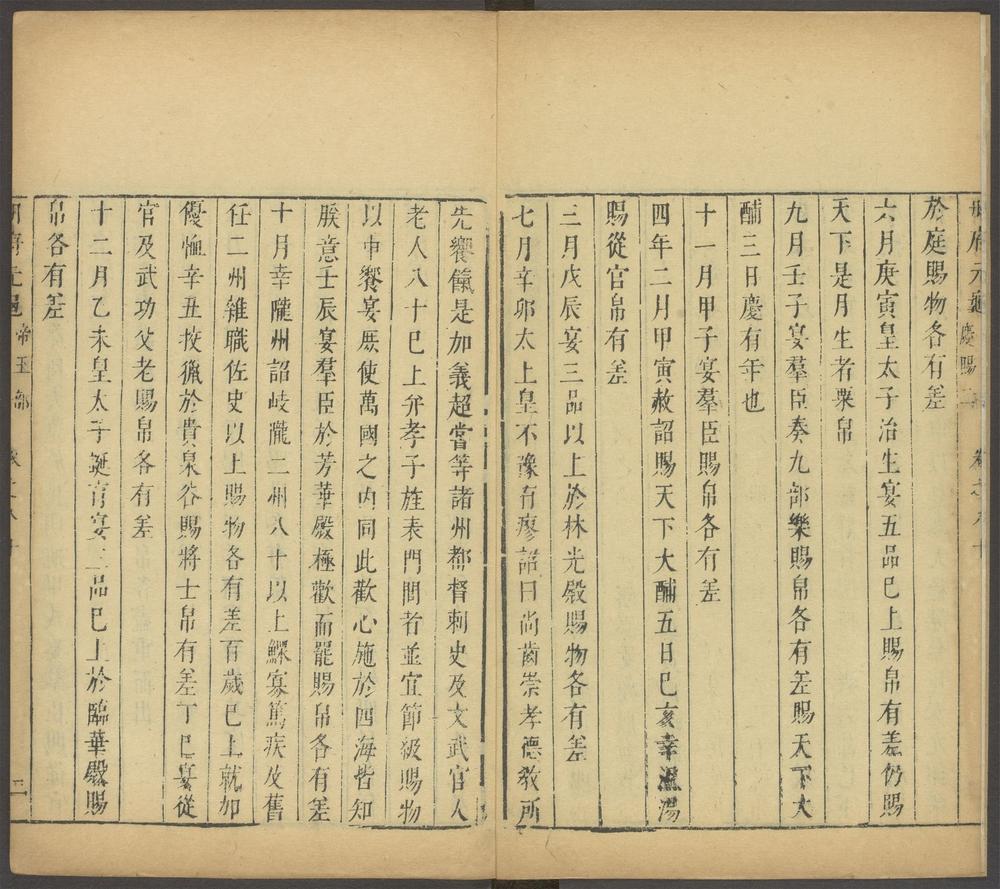 冊府元龜慶賜二 卷之八十
於庭賜物各有差
六月庚寅皇太子治生宴五品巳上賜帛有差仍賜
天下是月生者粟帛
九月壬子宴羣臣奏九部樂賜帛各有差賜天下大
酺三日慶有年也
十一月甲子宴羣臣賜帛各有差
四年二月甲寅赦詔賜天下大酺五日巳亥幸溫湯
賜從官帛有差
三月戊辰宴三品以上於林光殿賜物各有差
七月辛卯太上皇不豫有廖詔曰尚齒崇孝德教所
先饗餼是加義超嘗等諸州都督刺史及文武官人
老人八十巳上弁孝子旌表門閭者並宜節級賜物
以申饗宴厥使萬國之內同此歡心施於四海皆知
朕意壬辰宴羣臣於芳華殿極歡而罷賜帛各有差
十月幸隴州詔岐隴二州八十以上鰥寡篤疾及舊
任二州雜職佐史以上賜物各有差百歲巳上就加
優恤辛丑挍獵於貴泉谷賜將士帛有差丁巳宴從
官及武功父老賜帛各有差
十二月乙未皇太子誕育宴三品巳上於臨華殿賜
帛各有差
冊府元龜帝王部 卷之八十 三